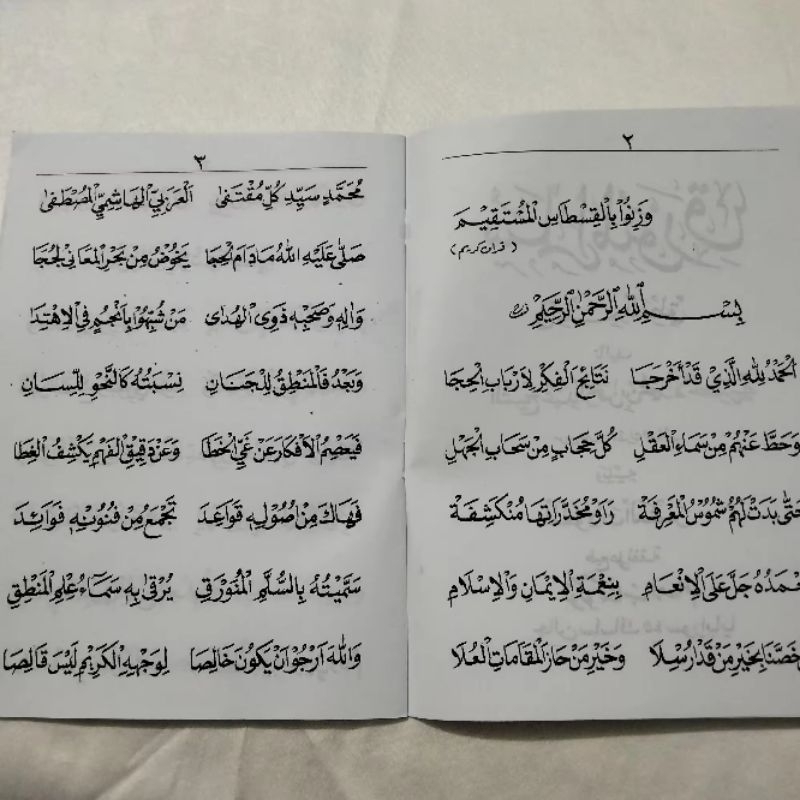 ٢
وَزِنُوْا بِالْقِسْطَاسِ الْمُسْتَقِيْمِ
(قران كريم)
بِسْمِ اللهِ الرَّحْمٰنِ الرَّحِيْمِ
اَلْحَمْدُ لِلهِ الَّذِيْ قَدْ اَخْرَجَا نَتَائِجَ الْفِكْرِ لِاَرْبَابِ الْحِجَا
وَحَطَّ عَنْهُمْ مِنْ سَمَاءِ الْعَقْلِ كُلَّ حِجَابٍ مِنْ سَحَابِ الْجَهْلِ
حَتّٰى بَدَتْ لَهُمْ شُمُوْسُ الْمَعْرِفَةْ رَاَوْ مُخَدَّرَاتِهَا مُنْكَشِفَةْ
نَحْمَدُهُ جَلَّ عَلَى الْاِنْعَامِ بِنِعْمَةِ الْاِيْمَانِ وَالْاِسْلَامِ
مَنْ خَصَّنَا بِخَيْرِ مَنْ قَدْ اُرْسِلَا وَخَيْرِ مَنْ حَازَ الْمَقَامَاتِ الْعُلَا
٣
مُحَمَّدٍ سَيِّدِ كُلِّ مُقْتَفٰى اَلْعَرَبِيِّ الْهَاشِمِيِّ الْمُصْطَفٰى
صَلّٰى عَلَيْهِ اللهُ مَادَامَ الْحِجَا يَخُوْضُ مِنْ بَحْرِ الْمَعَانِيْ لُجَجَا
وَاٰلِهِ وَصَحْبِهِ ذَوِى الْهُدٰى مَنْ شُبِّهُوْا بِاَنْجُمٍ فِي الْاِهْتِدَا
وَبَعْدُ فَالْمَنْطِقُ لِلْجَنَانِ نِسْبَتُهُ كَالنَّحْوِ لِلِّسَانِ
فَيَعْصِمُ الْاَفْكَارَ عَنْ غَيِّ الْخَطَا وَعَنْ دَقِيْقِ الْفَهْمِ يَكْشِفُ الْغِطَا
فَهَاكَ مِنْ اُصُوْلِهِ قَوَاعِدَ تَجْمَعُ مِنْ فُنُوْنِهِ فَوَائِدَ
سَمَّيْتُهُ بِالسُّلَّمِ الْمُنَوْرَقِ يُرْقٰى بِهِ سَمَاءُ عِلْمِ الْمَنْطِقِ
وَاللهَ اَرْجُوْ اَنْ يَكُوْنَ خَالِصَا لِوَجْهِهِ الْكَرِيْمِ لَيْسَ قَالِصَا